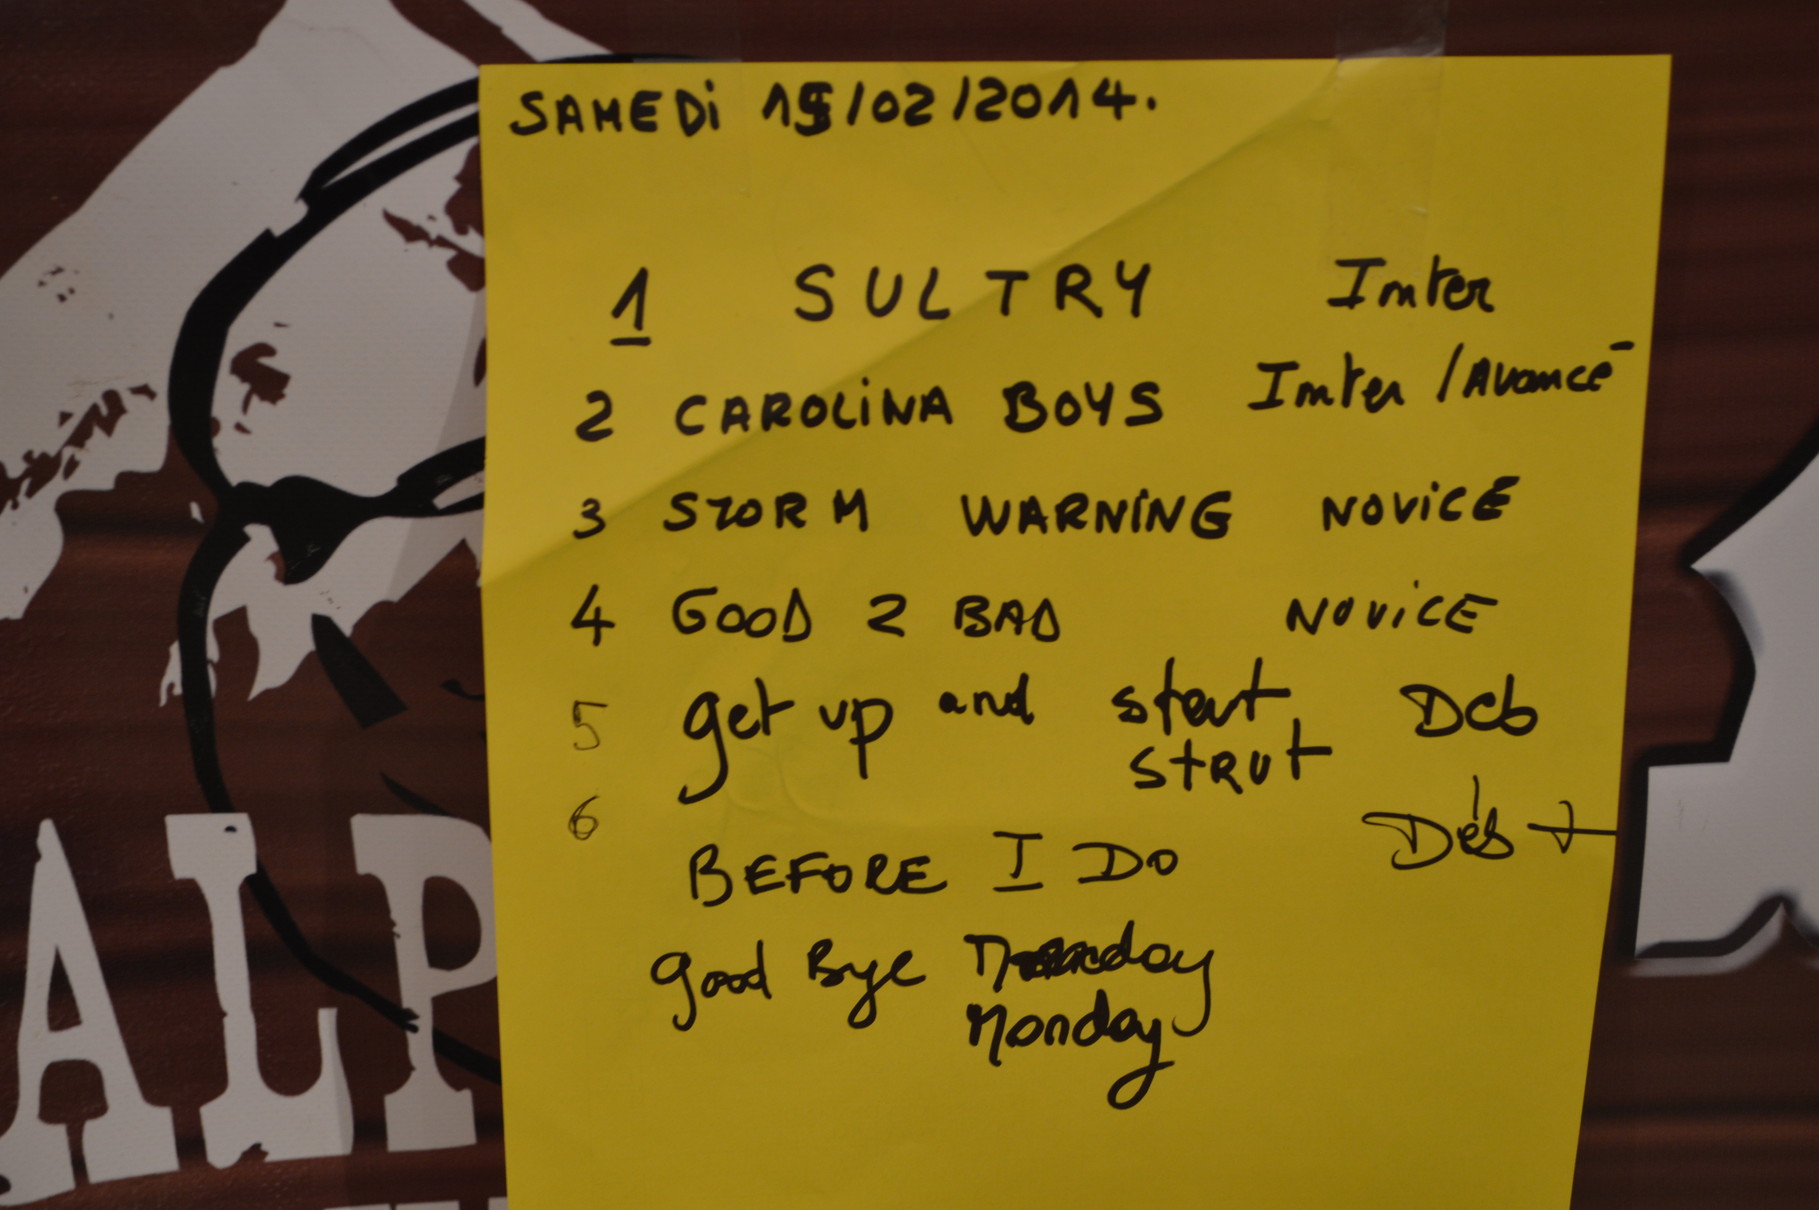 SAMEDi 15/02/2014.
1 SULTRY Inter
2 CAROLiNA BOYS Inter /Avancé
3 STORM WARNiNG NOViCE
4 GOOD 2 BAD NOViCE
5 get up and start Deb
strut
6 BEFORE I DO Déb +
good Bye day
Monday
ALP